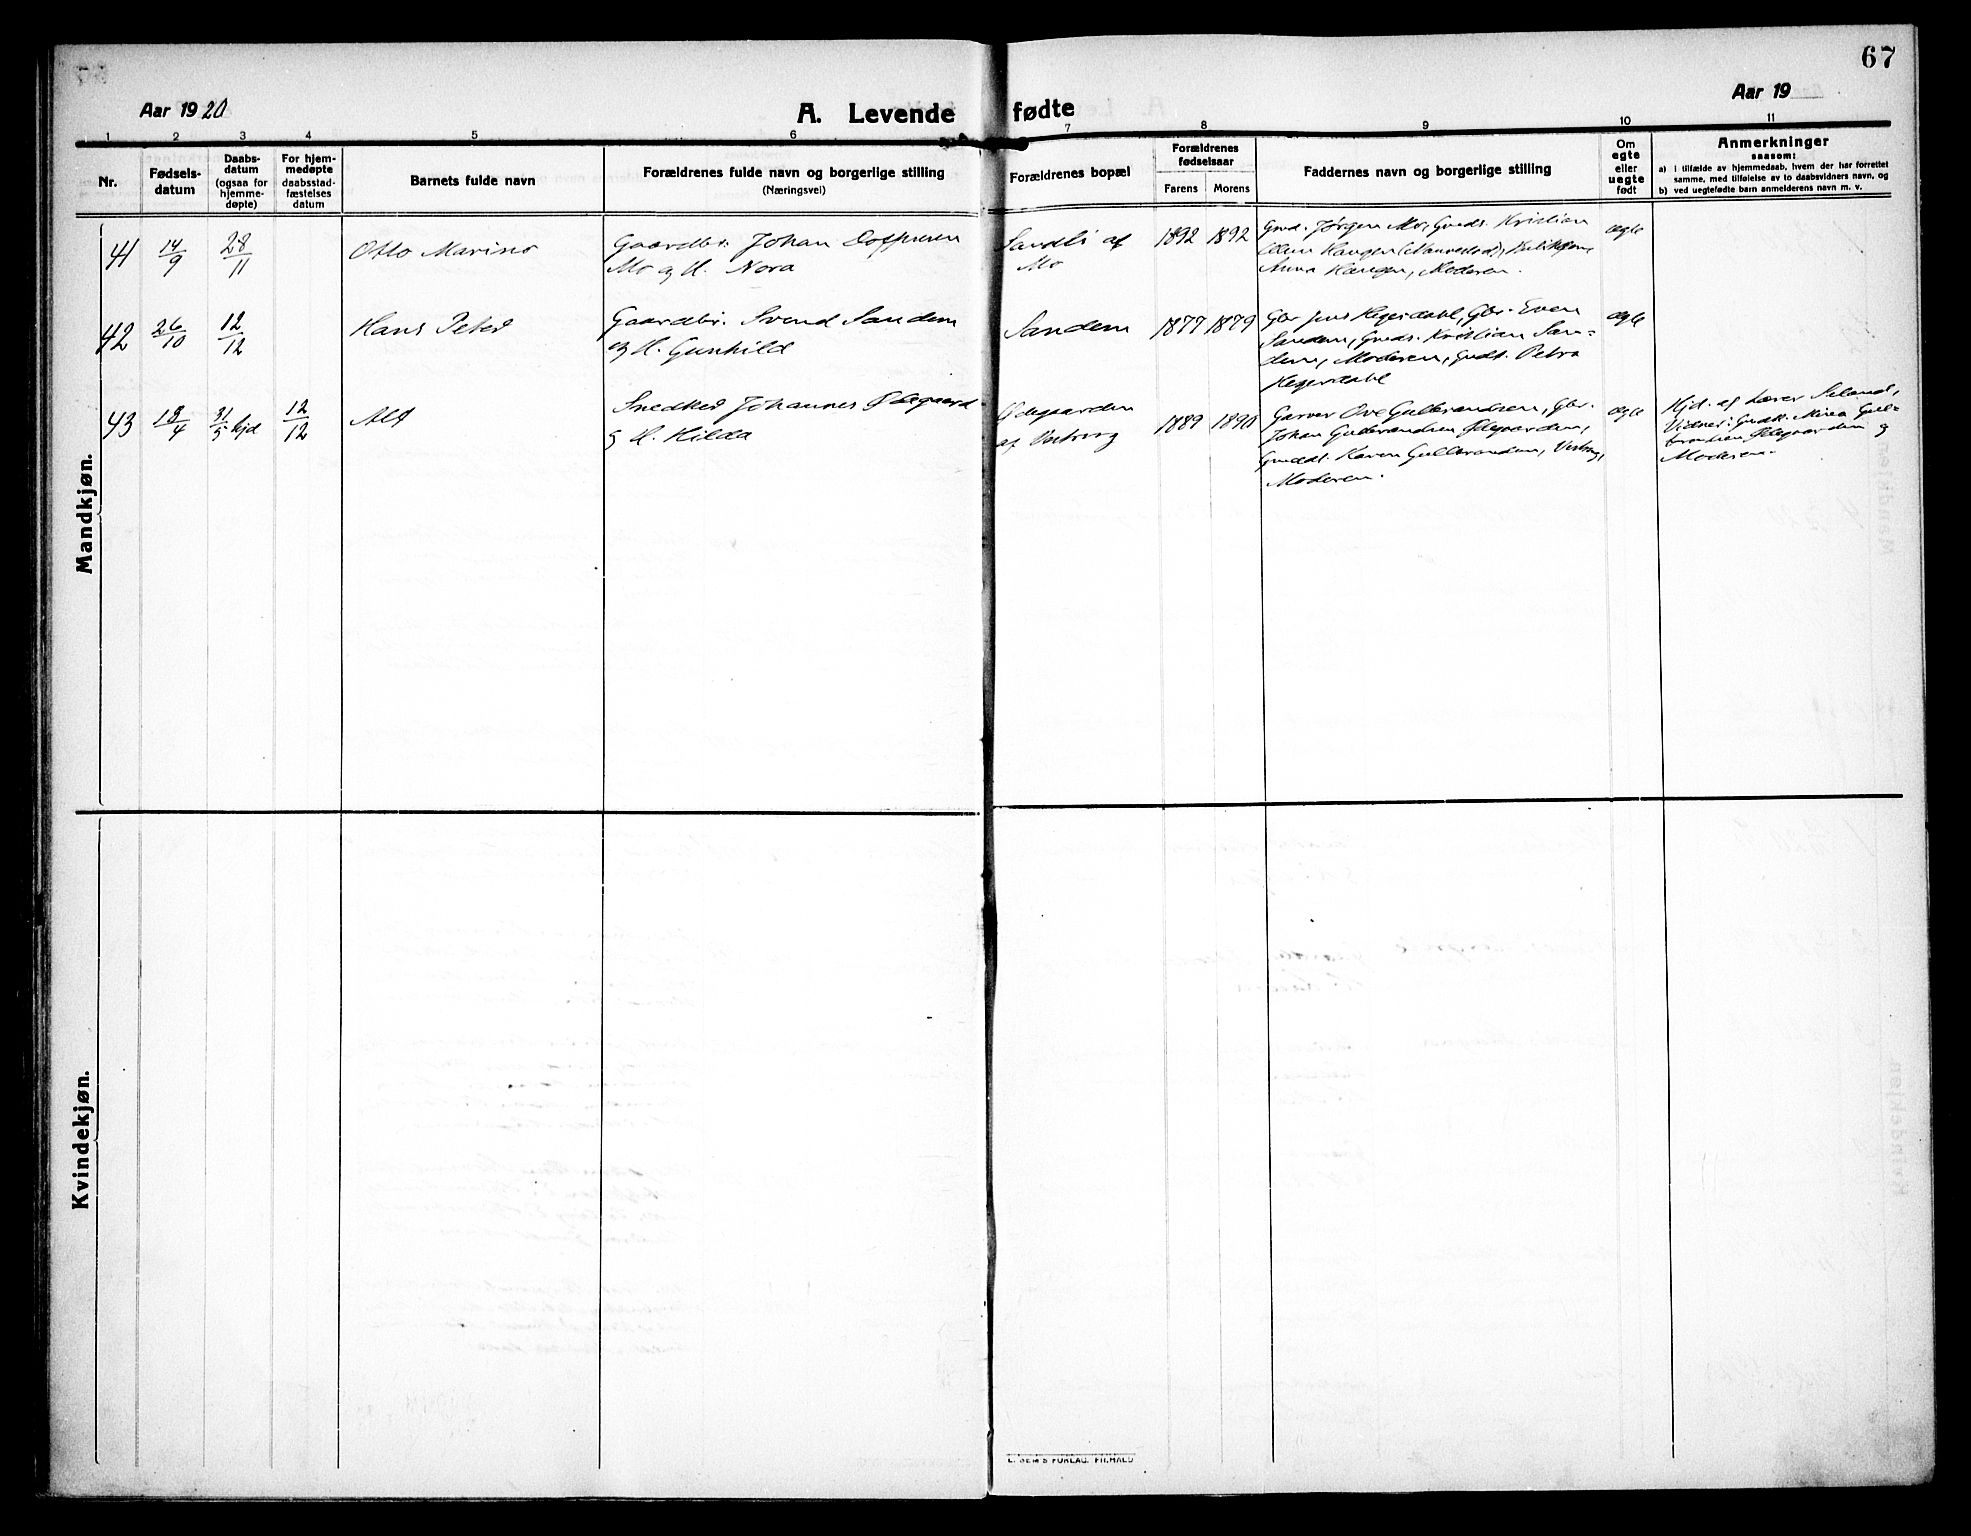 67
Aar 1920
A. Levende fødte
Aar 19
1 2 3 4 5 6 7 8 9 10 11
Nr.
Fødsels-
datum
Daabs-
datum
(ogsaa for
hjemme-
døpte)
For hjem-
medøpte
daabsstad-
fæstelses
datum
Barnets fulde navn
Forældrenes fulde navn og borgerlige stilling
(Næringsvei)
Forældrenes bopæl
Forældrenes
fødselsaar
Farens Morens
Faddernes navn og borgerlige stilling
Om
egte
eller
uegte
født
Anmerkninger
saasom:
a) i tilfælde av hjemmedaab, hvem der har forrettet
samme, med tilføielse av to daabsvidners navn, og
b) ved uegtefødte barn anmelderens navn m. v.
Mandkjøn.
41 14/9 28/11 Otto Marino Gaardbr. Johan
Mo og H. Nora
Sandli af
Mo
1892 1892
Gmd. Jørgen Mo, Gmds. Kristian
Anna Haugen, Moderen.
ægte
42 26/10 12/12 Hans Peter Gaardbr. Svend Sandem
og H. Gunhild
Sandem 1877 1879
Gbr Jens Hegerdahl, Gbr. Even
Sandem, Gmds. Kristian San-
dem, Moderen, Gmdt. Petra
Hegerdahl
ægte
43 18/4 31/5 hjd 12/12 Alf Snedker Johannes Ødegaard
og H. Hilda
Ødegaarden
af Vestborg
1889 1890
Garver Ove Gulbrandsen, Gbr.
Johan Gulbrandsen Ødegaarden,
Gmddt. Karen Gulbrandsen,
Moderen.
ægte
Hjd. af Lærer
Vidner: Gmdt. Gul-
brandsen Ødegaarden og
Moderen.
Kvindekjøn.
E. SEM'S FORLAG, FR.HALD